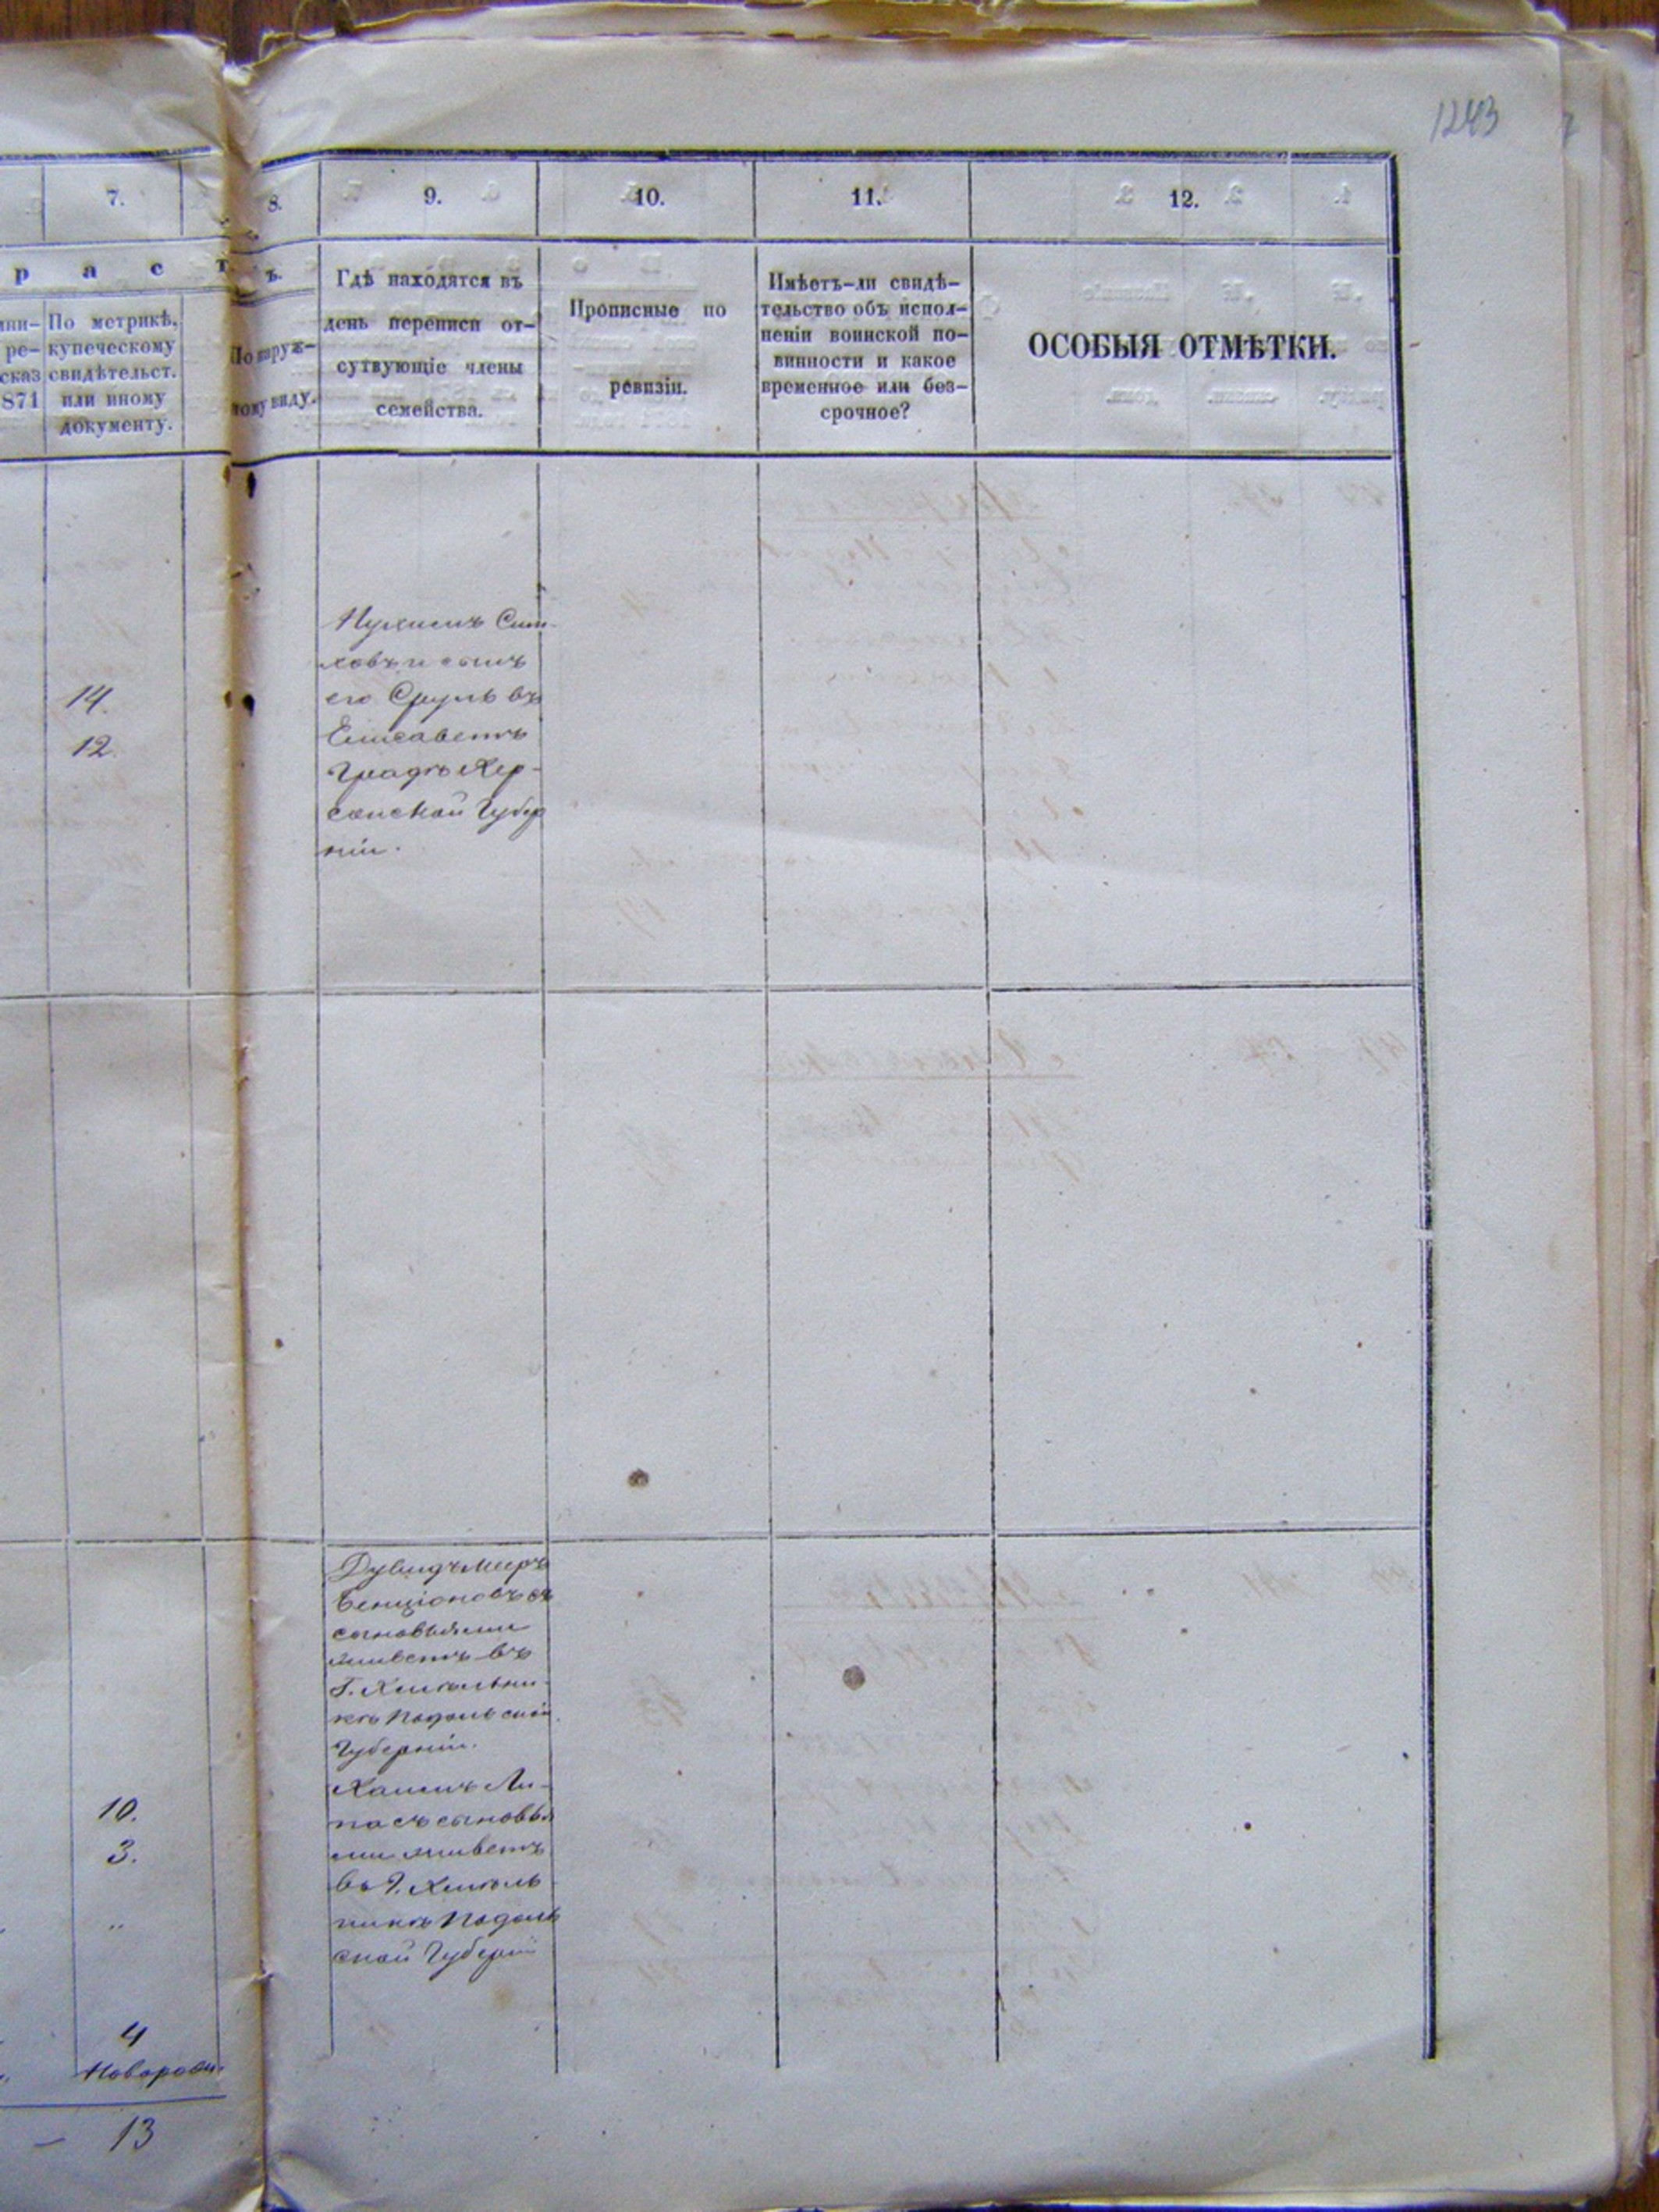 1243
7.
8.
9.
10.
11.
12.
р а с т
ъ.
ини-
ре-
сказ
871
По метрикѣ,
купеческому
свидѣтельст.
или иному
документу.
По наруж-
ному виду.
Гдѣ находятся въ
день переписи от-
сутвующіе члены
семейства.
Прописные по
ревизіи.
Имѣетъ-ли свидѣ-
тельство объ испол-
неніи воинской по-
винности и какое
временное или без-
срочное?
ОСОБЫЯ ОТМѢТКИ.
14.
12.
Нухимъ Сим-
ховъ и сынъ
его Сруль въ
Елисаветъ
Градѣ Хер-
сонской Губер
ніи.
Дувидъ Мееръ
Бенціоновъ съ
сыновьями
живетъ въ
Г. Хмѣльни-
кѣ Подольской
Губерніи.
Хаимъ Ли-
па съ сыновья
ми живетъ
въ Г. Хмѣль-
никѣ Подоль
ской Губерніи
10.
3.
"
4
Новорожд.
— 13